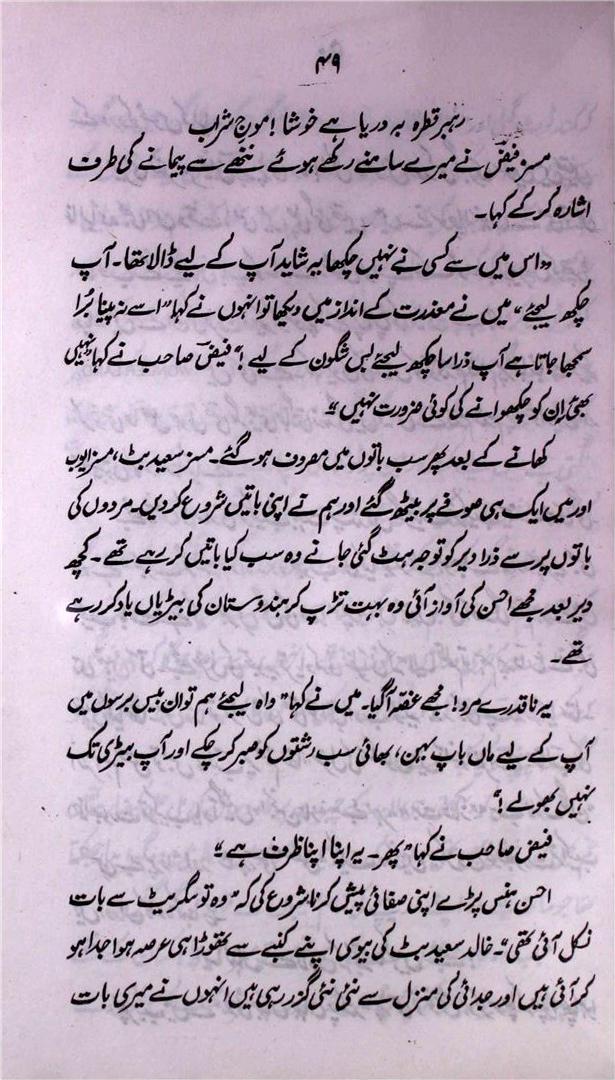 ۴۹
رہبرِ قطرہ بہ دریا ہے خوشا! موجِ شراب
مسز فیض نے میرے سامنے رکھے ہوئے ننھے سے پیمانے کی طرف
اشارہ کر کے کہا۔
"اس میں سے کسی نے نہیں چکھا یہ شاید آپ کے لیے ڈالا تھا۔ آپ
چکھ لیجئے" میں نے معذرت کے انداز میں دیکھا تو انہوں نے کہا "اسے نہ پینا بُرا
سمجھا جاتا ہے آپ ذرا سا چکھ لیجئے بس شگون کے لیے!" فیض صاحب نے کہا "نہیں
بھئی اِن کو چکھوانے کی کوئی ضرورت نہیں"
کھانے کے بعد پھر سب باتوں میں مصروف ہو گئے۔ مسز سعید بٹ، مسز ایوب
اور میں ایک ہی صوفے پر بیٹھ گئے اور ہم نے اپنی باتیں شروع کر دیں۔ مردوں کی
باتوں پر سے ذرا دیر کو توجہ ہٹ گئی جانے وہ سب کیا باتیں کر رہے تھے۔ کچھ
دیر بعد مجھے احسن کی آواز آئی وہ بہت تڑپ کر ہندوستان کی بیڑیاں یاد کر رہے
تھے۔
یہ ناقدرے مرد! مجھے غصّہ آگیا۔ میں نے کہا "واہ لیجئے ہم تو ان بیس برسوں میں
آپ کے لیے ماں باپ بہن، بھائی سب رشتوں کو صبر کر چکے اور آپ بیڑی تک
نہیں بھولے!"
فیض صاحب نے کہا "پھر۔ یہ اپنا اپنا ظرف ہے"
احسن ہنس پڑے اپنی صفائی پیش کرنا شروع کی کہ "وہ تو سگریٹ سے بات
نکل آئی تھی"۔ خالد سعید بٹ کی بیوی اپنے کنبے سے تھوڑا ہی عرصہ ہوا جدا ہو
کر آئی ہیں اور جدائی کی منزل سے نئی نئی گزر رہی ہیں انہوں نے میری بات